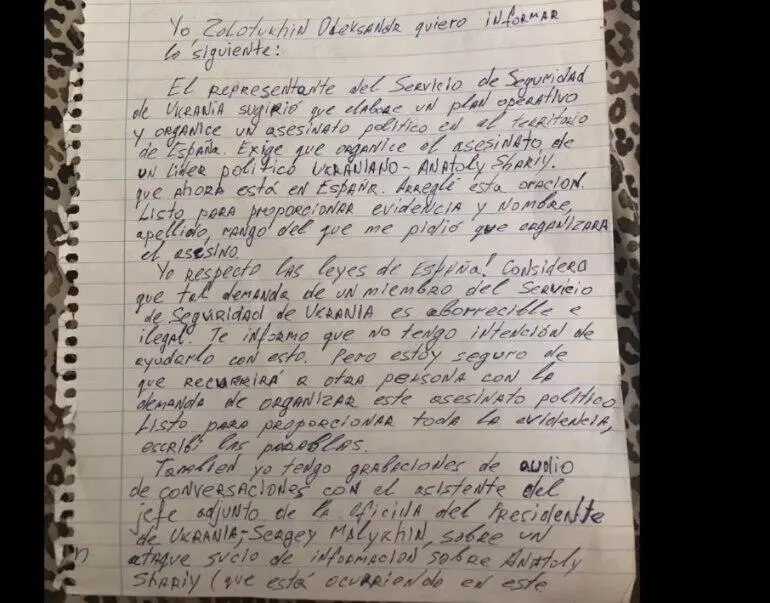 Yo Zolotukhin Oleksandr quiero informar
lo siguiente:
El representante del Servicio de Seguridad
de Ukrania sugirió que elabore un plan operativo
y organice un asesinato político en el territorio
de España. Exige que organice el asesinato de
un lider político Ukraniano - Anatoly Shariy.
que ahora está en España. Arreglé esta oracion.
Listo para proporcionar evidencia y nombre,
apellido, rango del que me pidió que organizara
el asesino.
Yo respecto las leyes de España! Considero
que tal demanda de un miembro del Servicio
de Seguridad de Ukrania es aborrecible e
ilegal. Te informo que no tengo intención de
ayudarlo con esto. Pero estoy seguro de
que recurrirá a otra persona con la
demanda de organizar este asesinato político
Listo para proporcionar toda la evidencia,
escribí las parablas.
Tambien yo tengo grabaciones de audio
de conversaciones con el asistente del
jefe adjunto de la Oficina del Presidente
de Ukrania, Sergey Malykhin, sobre un
ataque sucio de información sobre Anatoly
Shariy (que está ocurriendo en este